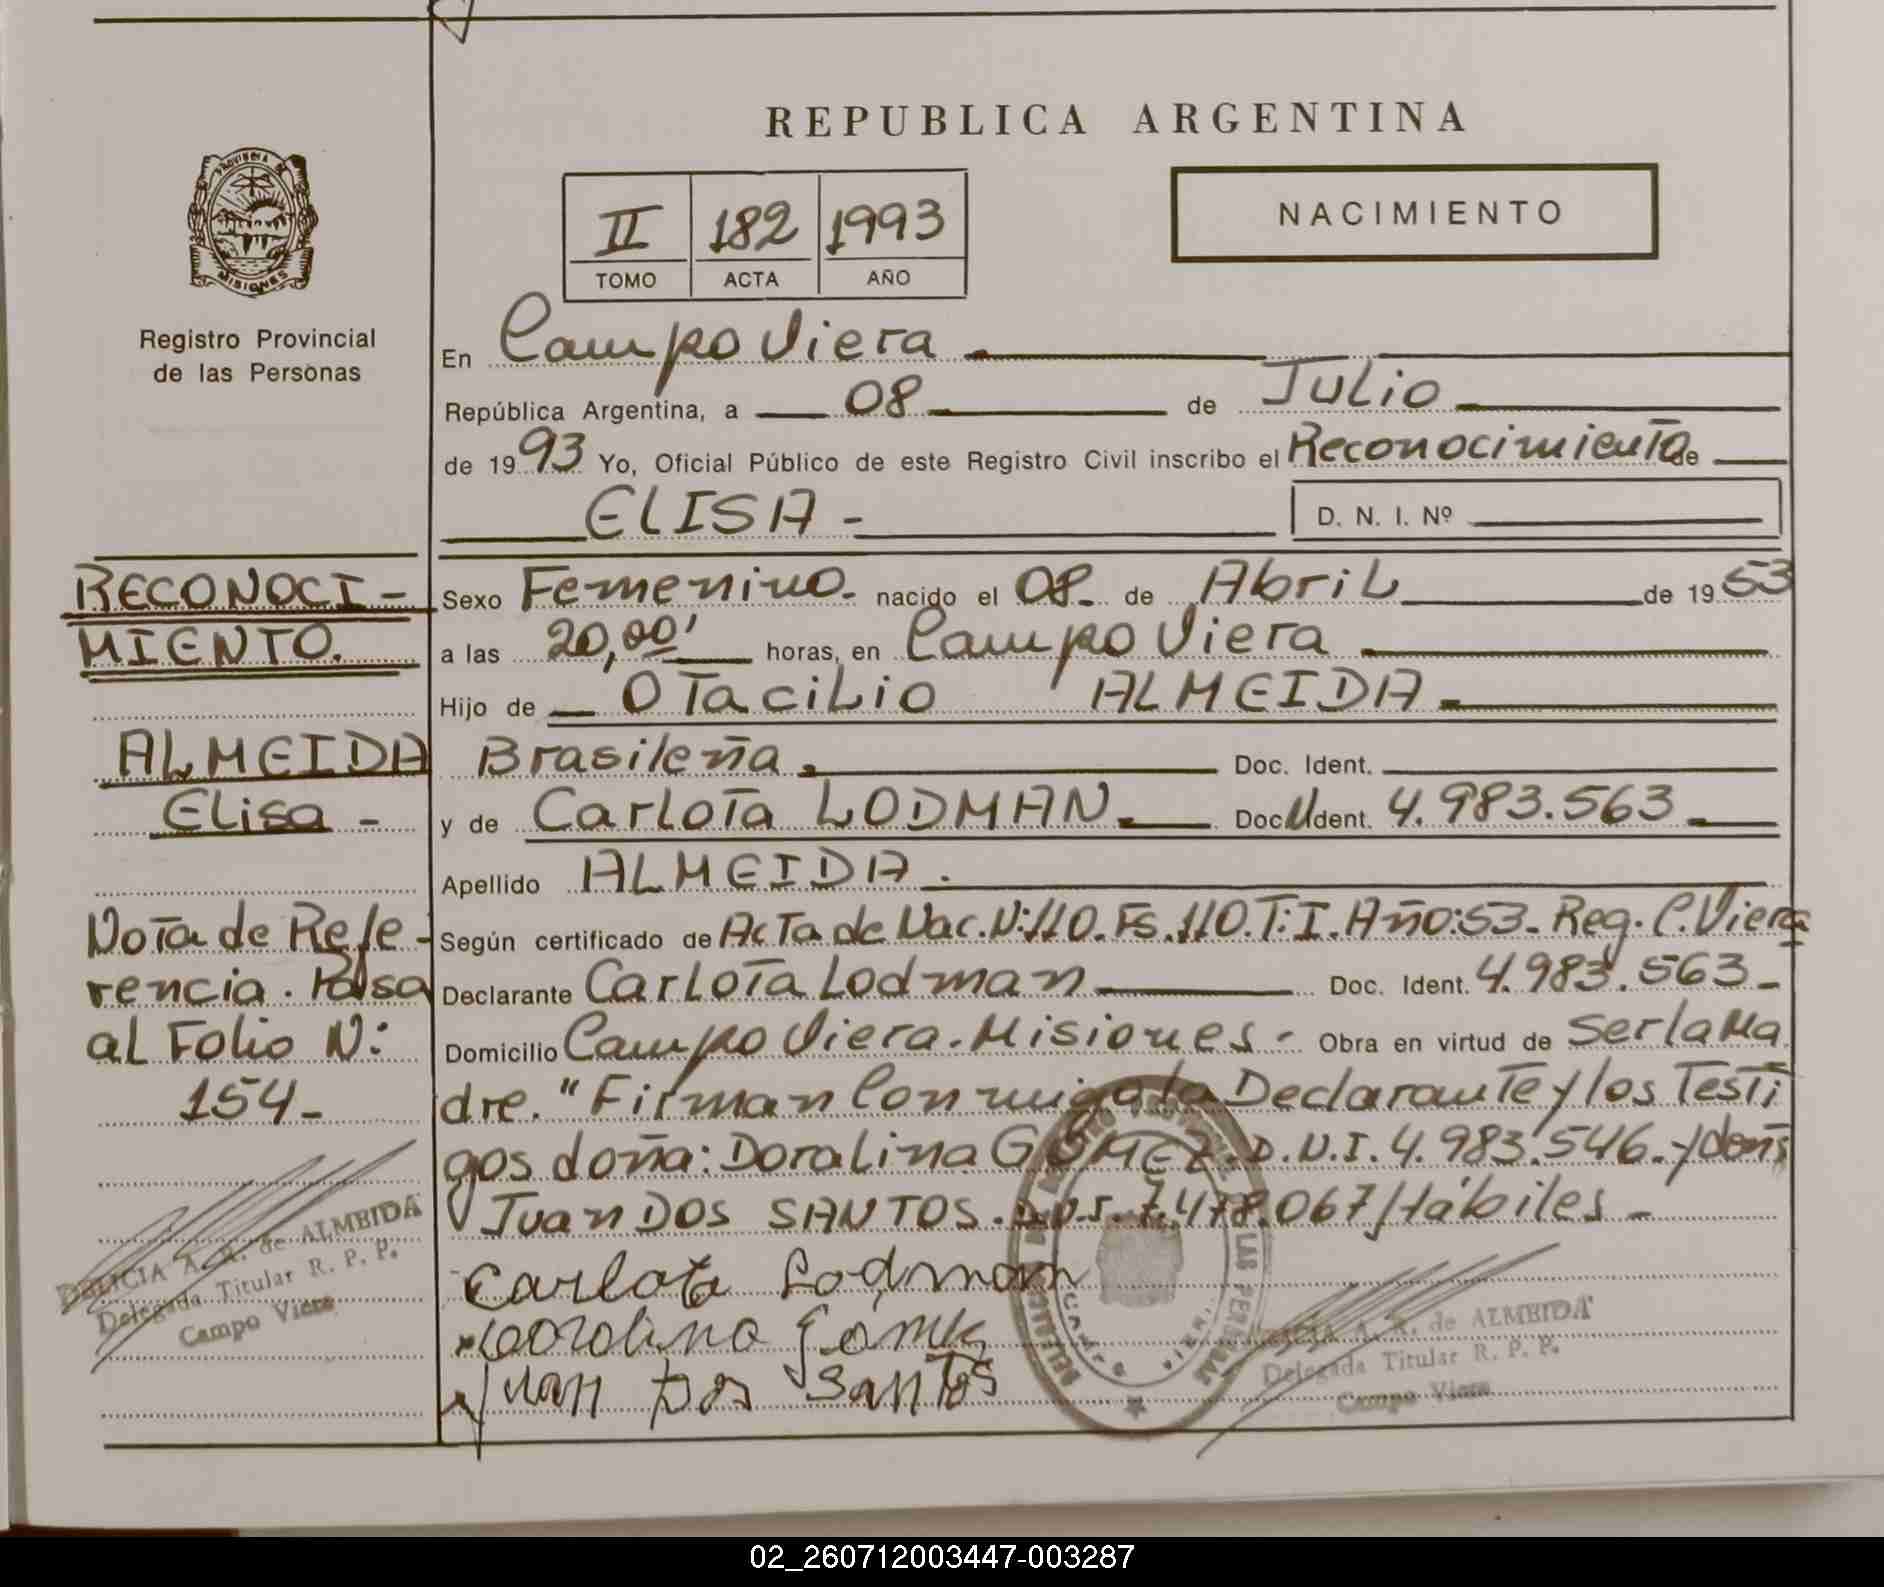 REPUBLICA ARGENTINA
PROVINCIA DE MISIONES
Registro Provincial
de las Personas
II 182 1993
TOMO ACTA AÑO
NACIMIENTO
En Campo Viera
República Argentina, a 08 de Julio
de 1993 Yo, Oficial Público de este Registro Civil inscribo el Reconocimiento de
ELISA - D. N. I. Nº
RECONOCI-
MIENTO.
ALMEIDA
Elisa -
Nota de Refe-
rencia. Pasa
al Folio N:
154-
DELICIA A. R. de ALMEIDA
Delegada Titular R. P. P.
Campo Viera
Sexo Femenino. nacido el 08 de Abril de 1953
a las 20,00' horas, en Campo Viera
Hijo de OTaciLio ALMEIDA.
Brasileña. Doc. Ident.
y de Carlota LODMAN. Doc. Ident. 4.983.563.
Apellido ALMEIDA.
Según certificado de Acta de Nac. N:110. Fs. 110. T: I. Año:53. Reg. C. Viera
Declarante Carlota Lodman Doc. Ident. 4.983.563-
Domicilio Campo Viera. Misiones - Obra en virtud de Ser la Ma
dre. "Firman Conmigo la Declarante y los Testi
gos doña: Doralina GOMEZ. D.N.I. 4.983.546. y don:
Juan DOS SANTOS. D.N.I. 7.478.067/Hábiles -
Carlota Lodman
Juan Dos Santos
CAMPO VIERA
A. R. de ALMEIDA
Delegada Titular R. P. P.
Campo Viera
02_260712003447-003287